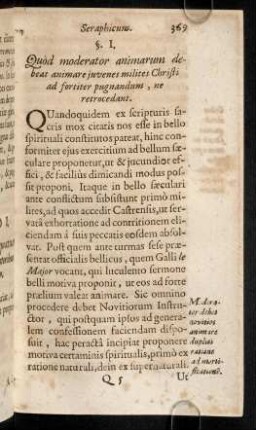 Seraphicum. 369
§. I.
Quòd moderator animarum de-
beat animare juvenes milites Christi
ad fortiter pugnandum, ne
retrocedant.
QUandoquidem ex scripturis sa-
cris mox citatis nos esse in bello
spirituali constitutos pateat, hinc con-
formiter ejus exercitium ad bellum sæ-
culare proponetur, ut & jucundior ef-
fici, & faciliùs dimicandi modus pos-
sit proponi, Itaque in bello sæculari
ante conflictum subsistunt primò mi-
lites, ad quos accedit Castrensis, ut ser-
vatâ exhortatione ad contritionem eli-
ciendam à suis peccatis eosdem absol-
vat. Post quem ante turmas sese præ-
sentat officialis bellicus, quem Galli le
Major vocant, qui luculento sermone
belli motiva proponit, ut eos ad forte
prælium valeat animare. Sic omnino
procedere debet Novitiorum Instru-
ctor, qui postquam ipsos ad genera-
lem confessionem faciendam dispo-
suit, hac peractâ incipiat proponere
motiva certaminis spiritualis, primò ex
ratione naturali, dein ex supernaturali.
Moderator debet
novitios
animare
duplici
ratione
Q 5 Ut